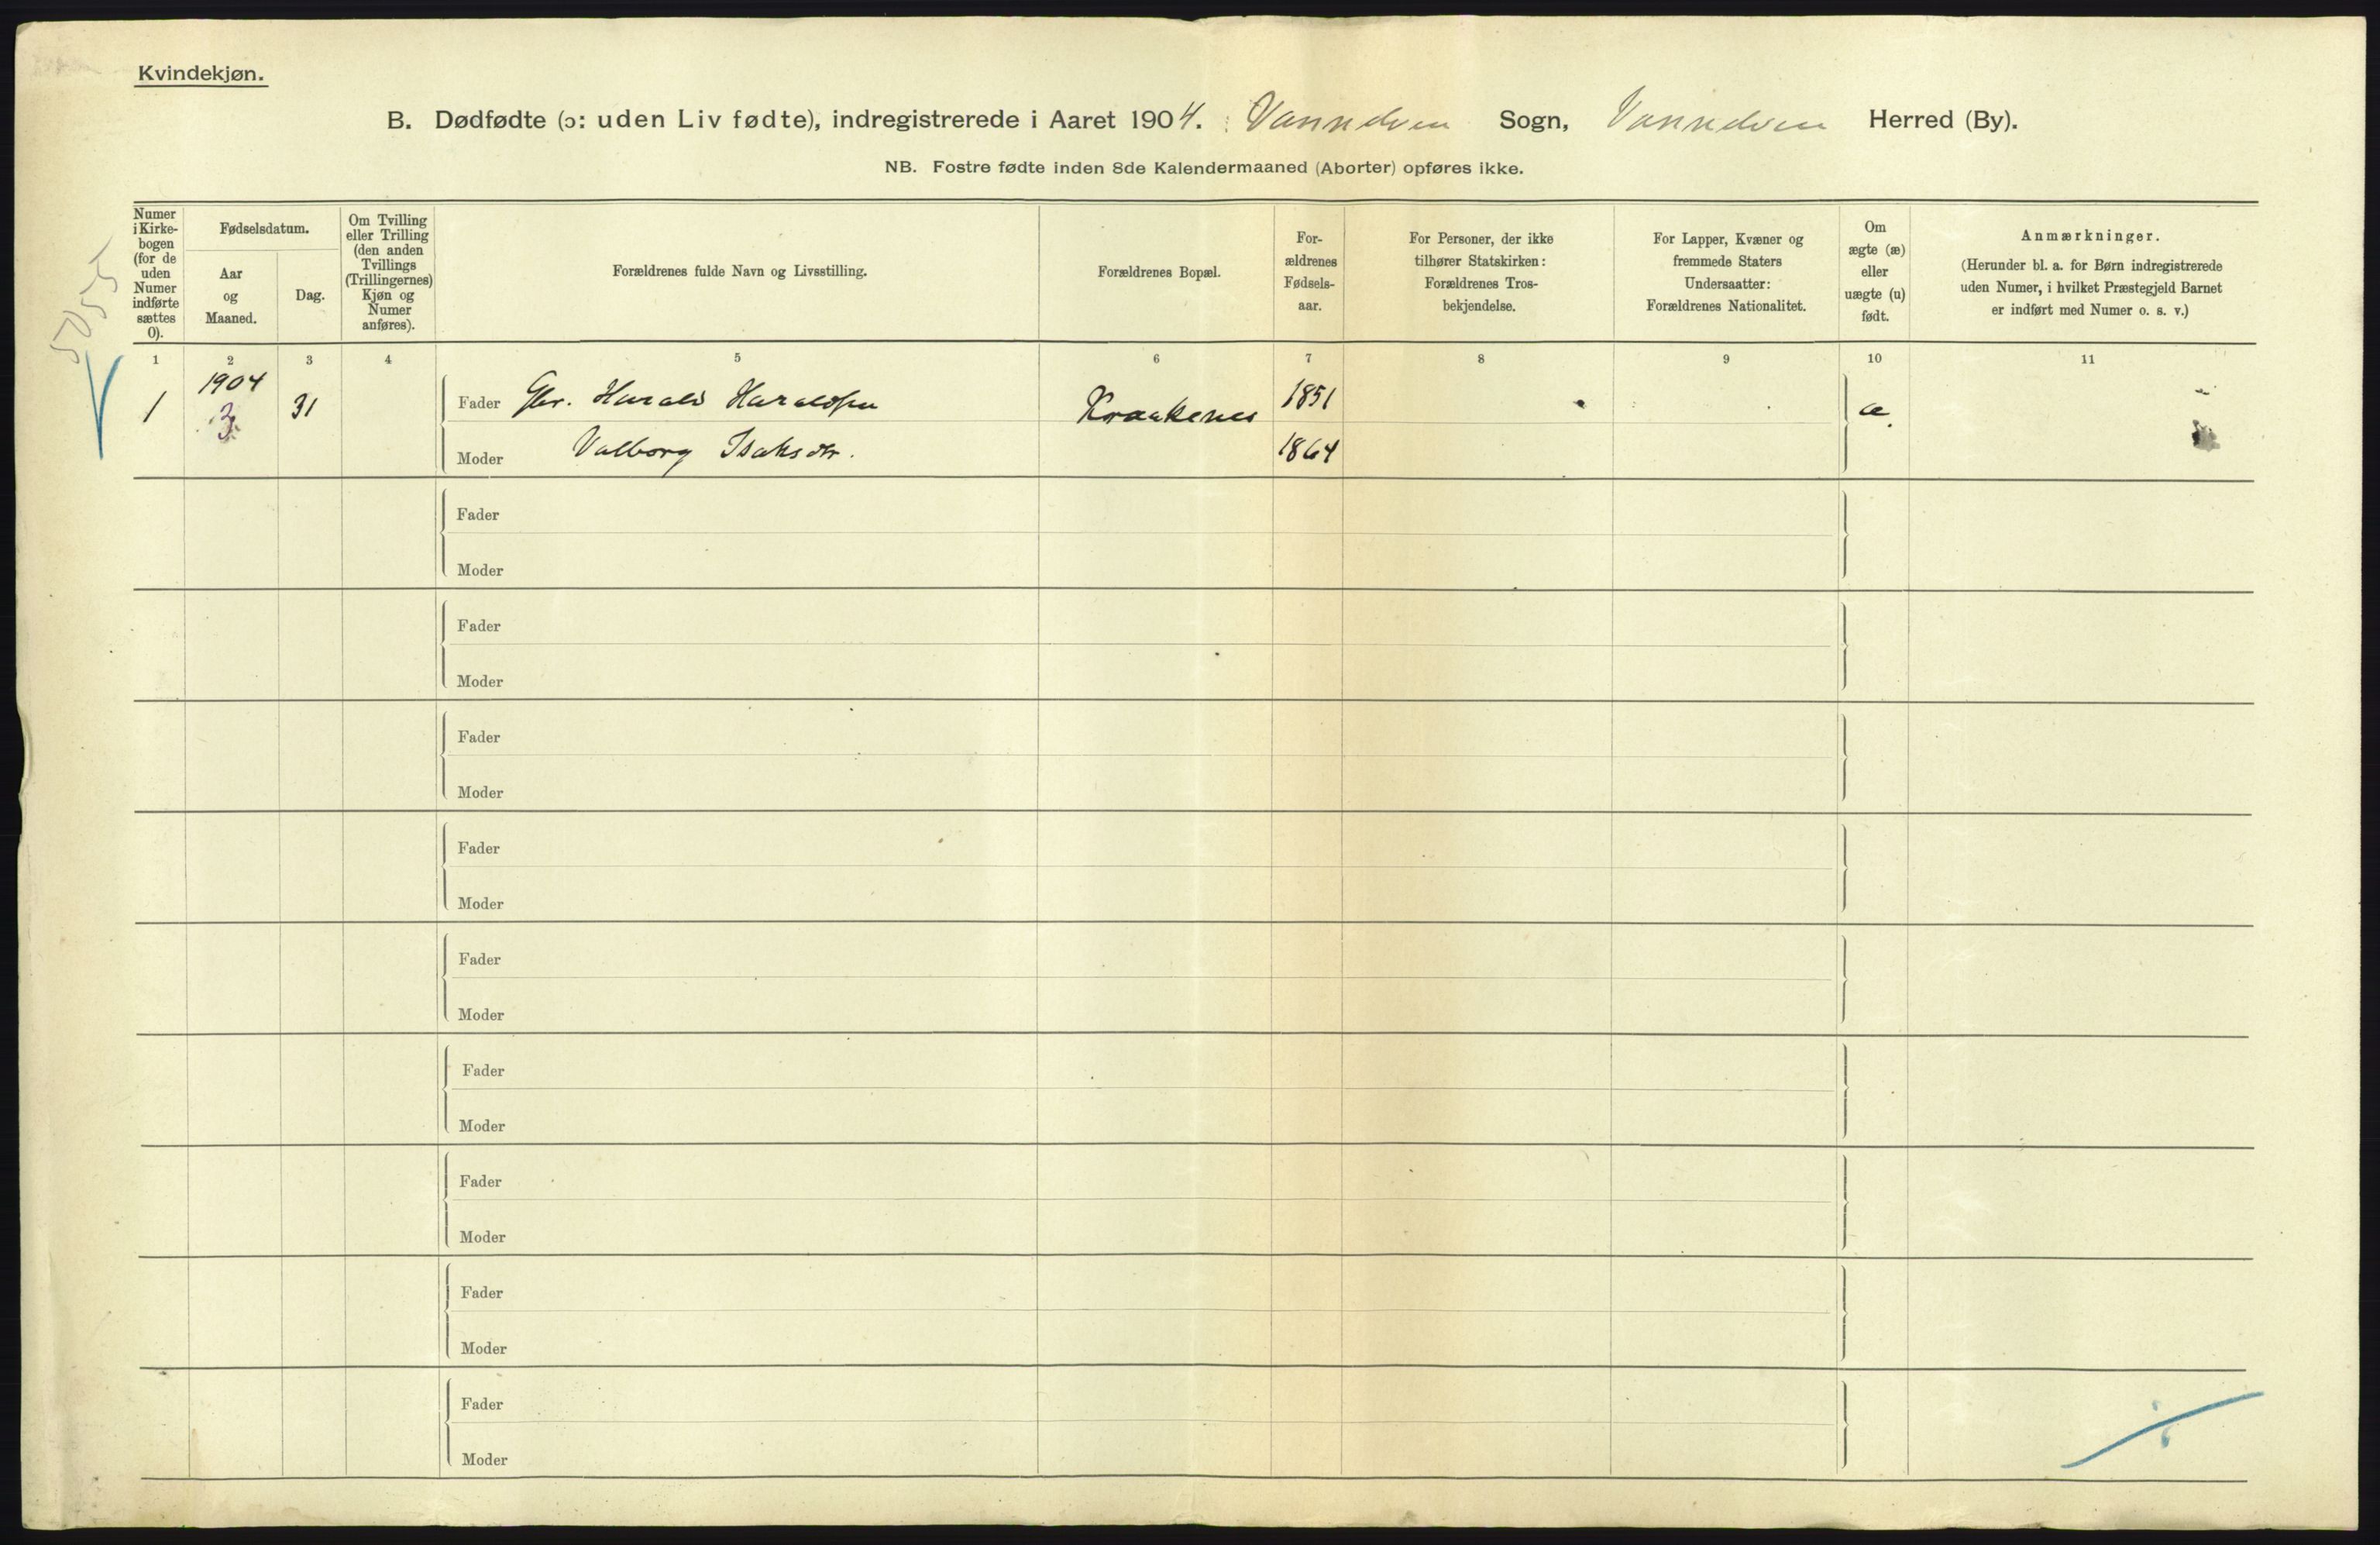 Kvindekjøn.
B. Dødfødte (ɔ: uden Liv fødte), indregistrerede i Aaret 1904. Vannelven Sogn, Vannelven Herred (By).
NB. Fostre fødte inden 8de Kalendermaaned (Aborter) opføres ikke.
Numer
i Kirke-
bogen
(for de
uden
Numer
indførte
sættes
0).
Fødselsdatum.
Aar
og
Maaned.
Dag.
Om Tvilling
eller Trilling
(den anden
Tvillings
(Trillingernes)
Kjøn og
Numer
anføres).
Forældrenes fulde Navn og Livsstilling.
Forældrenes Bopæl.
For-
ældrenes
Fødsels-
aar.
For Personer, der ikke
tilhører Statskirken:
Forældrenes Tros-
bekjendelse.
For Lapper, Kvæner og
fremmede Staters
Undersaatter:
Forældrenes Nationalitet.
Om
ægte (æ)
eller
uægte (u)
født.
Anmærkninger.
(Herunder bl. a. for Børn indregistrerede
uden Numer, i hvilket Præstegjeld Barnet
er indført med Numer o. s. v.)
1 2 3 4 5 6 7 8 9 10 11
1904
1 3 31 Fader Gbr. Harald Haraldsen Kraakenes 1851 æ.
Moder Valborg Isaksdtr. 1864
Fader
Moder
Fader
Moder
Fader
Moder
Fader
Moder
Fader
Moder
Fader
Moder
Fader
Moder
Fader
Moder
Fader
Moder